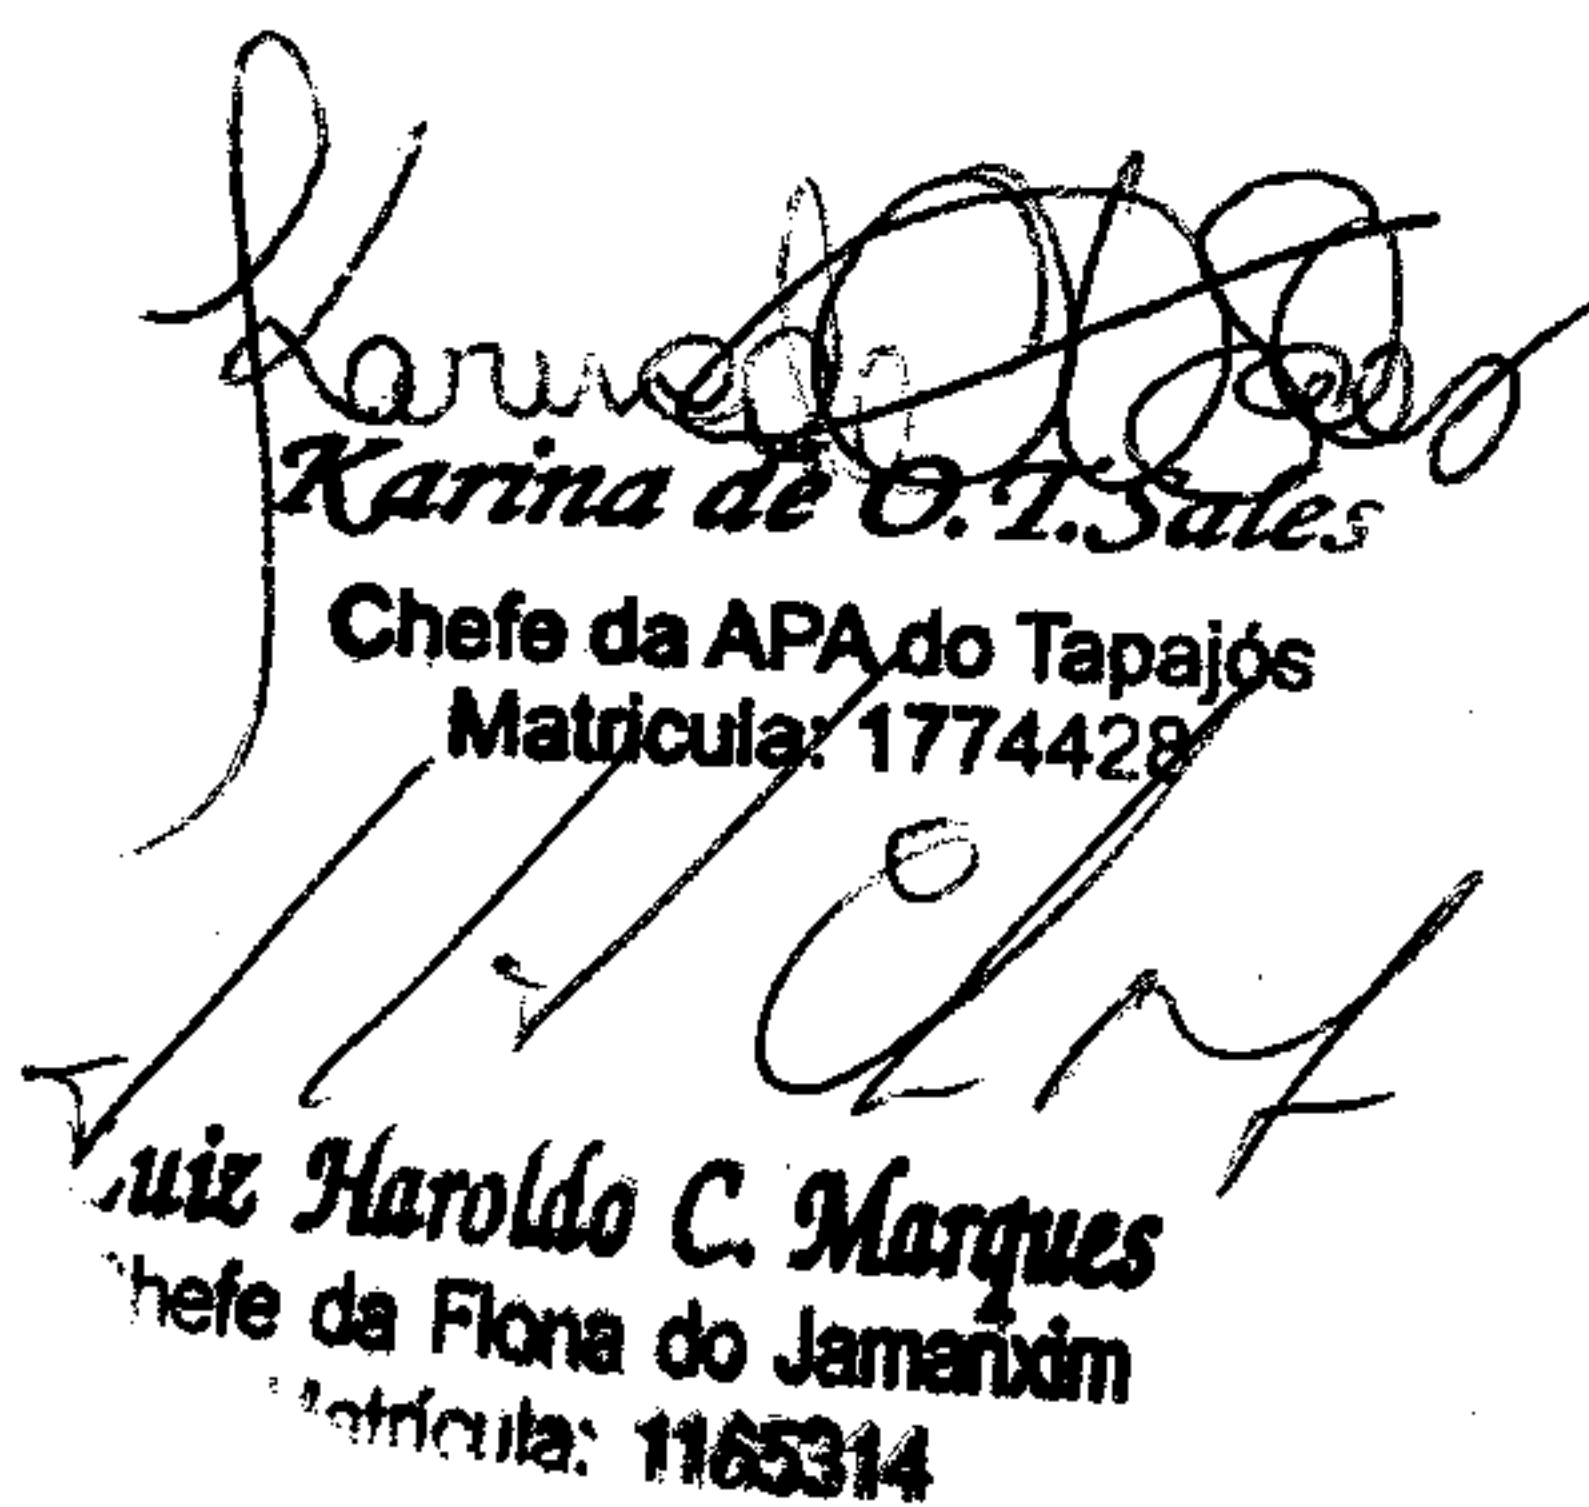 Karina de O. T. Sales
Chefe da APA do Tapajós
Matricula: 1774428
Luiz Haroldo C. Marques
Chefe da Flona do Jamanxim
Matrícula: 1165314